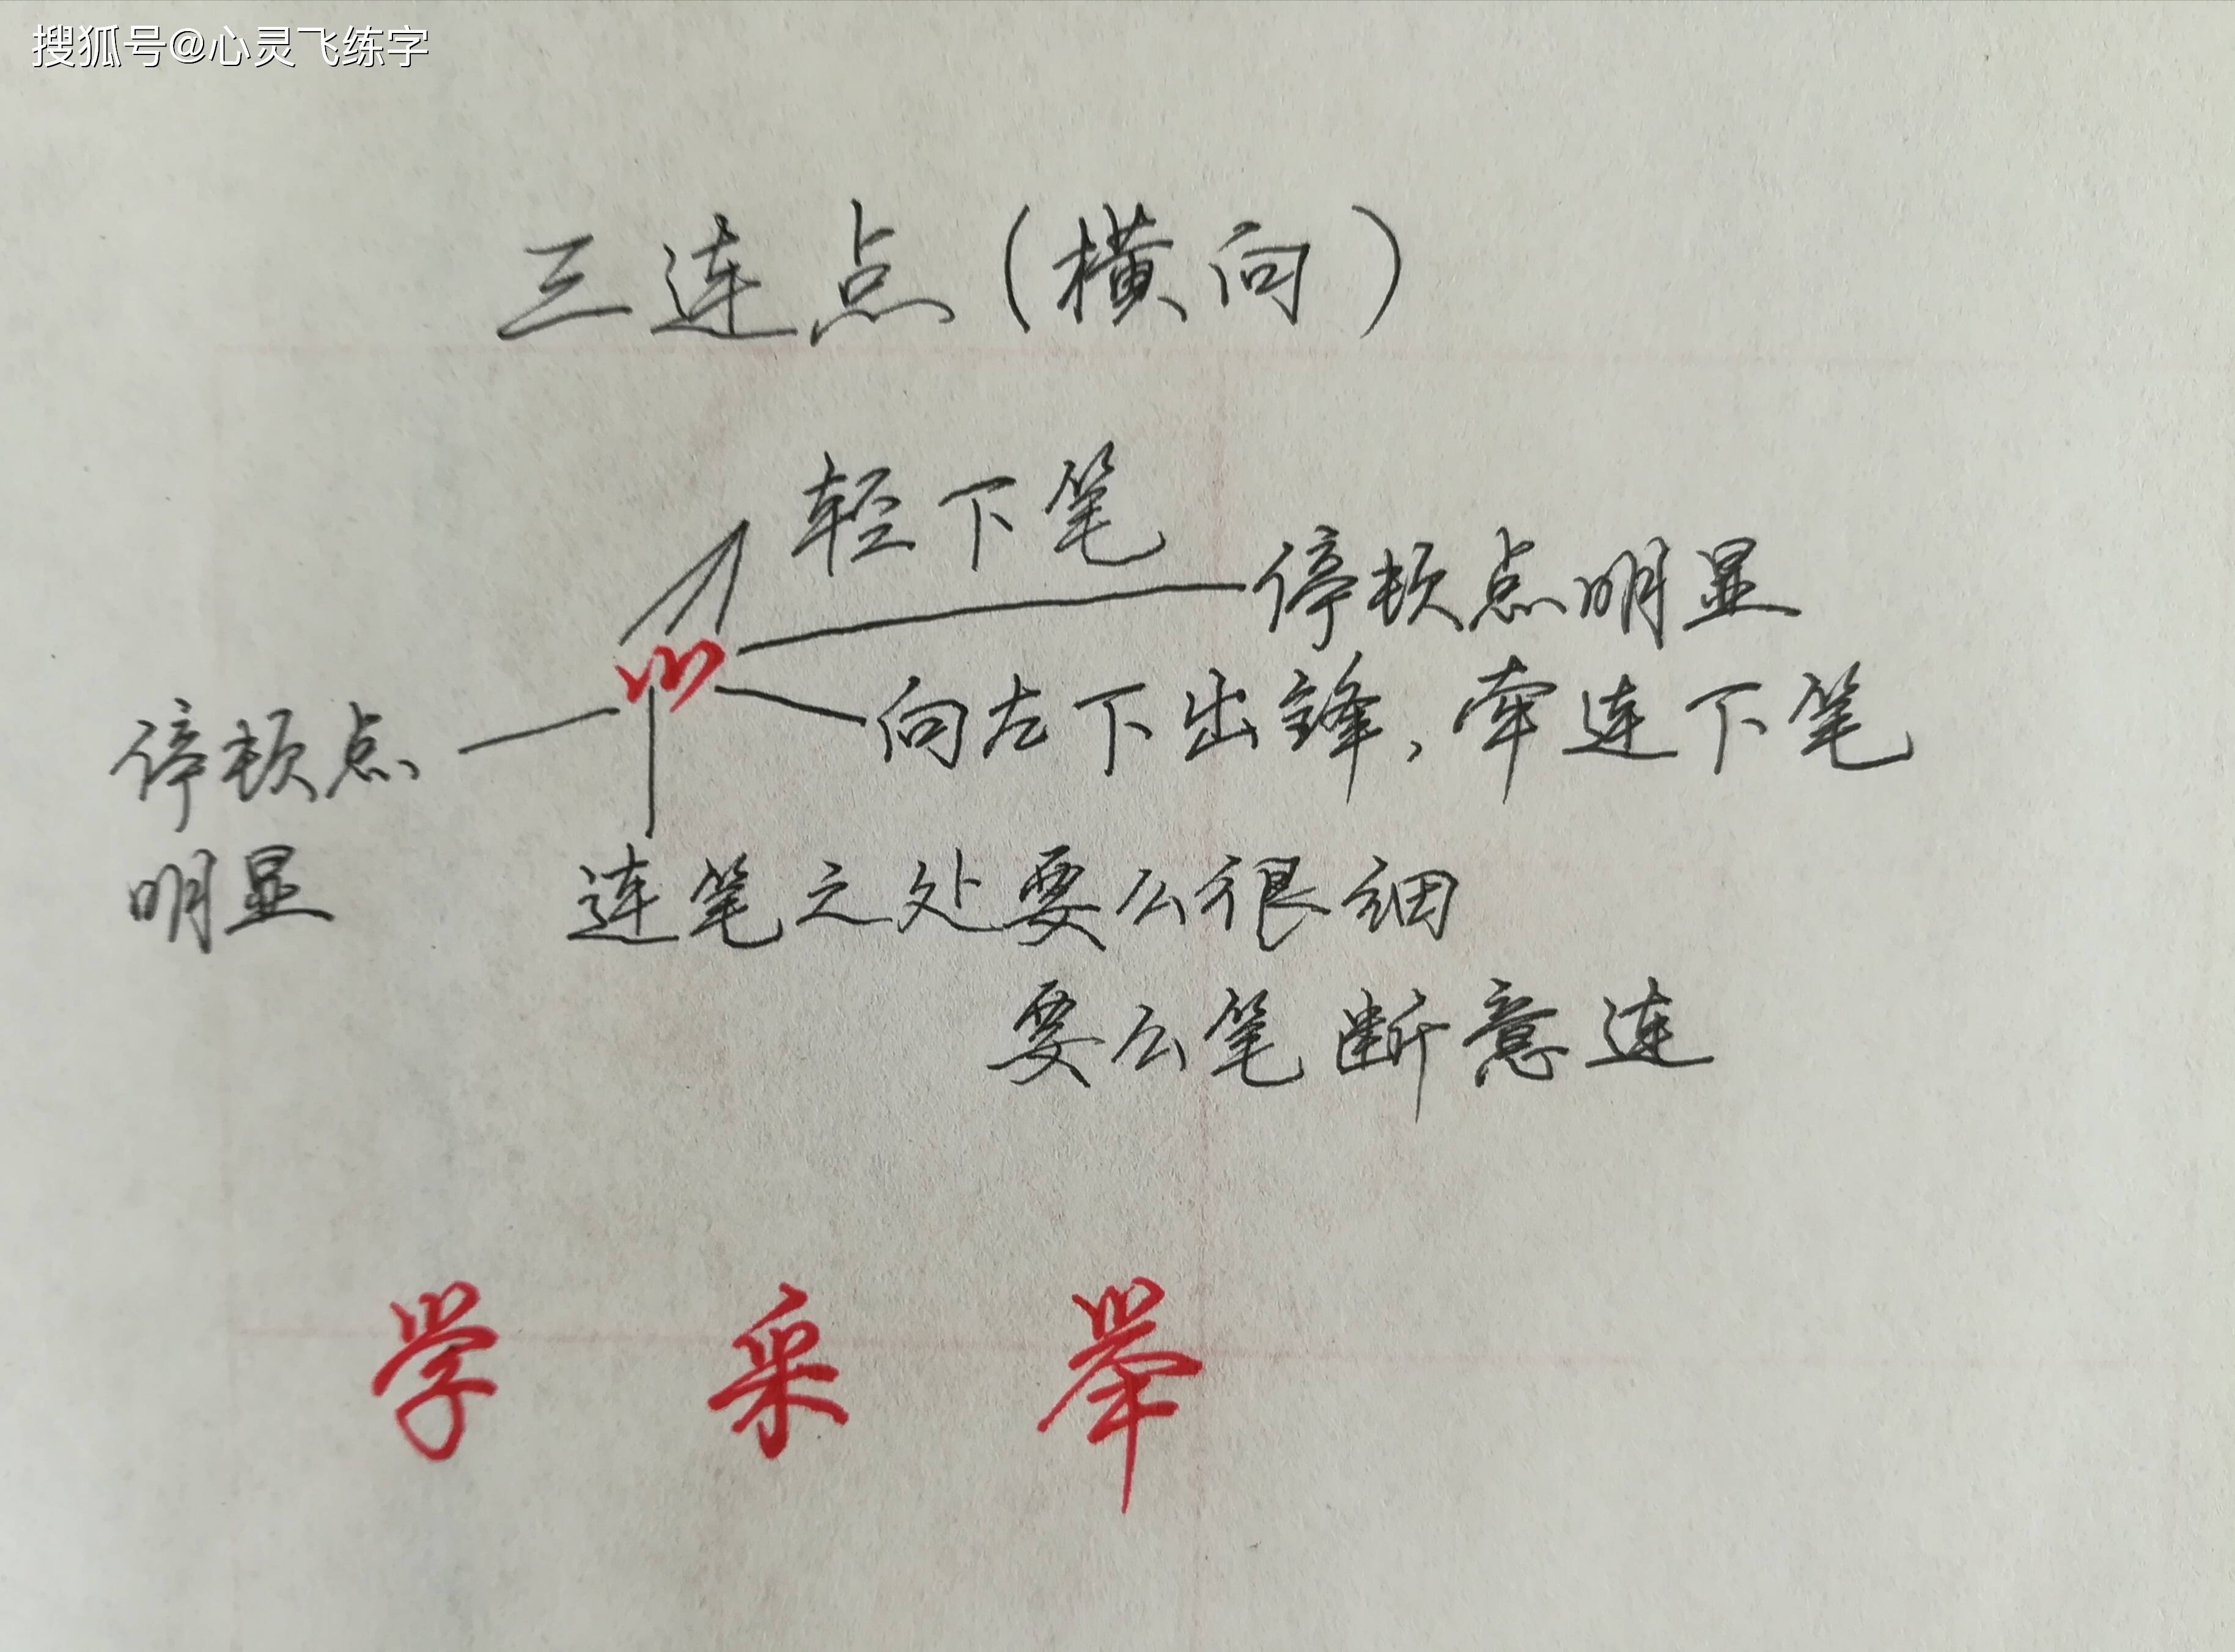 搜狐号@心灵飞练字
三连点(横向)
轻下笔
停顿点明显
向左下出锋,牵连下笔
停顿点
明显
连笔之处要么很细
要么笔断意连
学 采 举